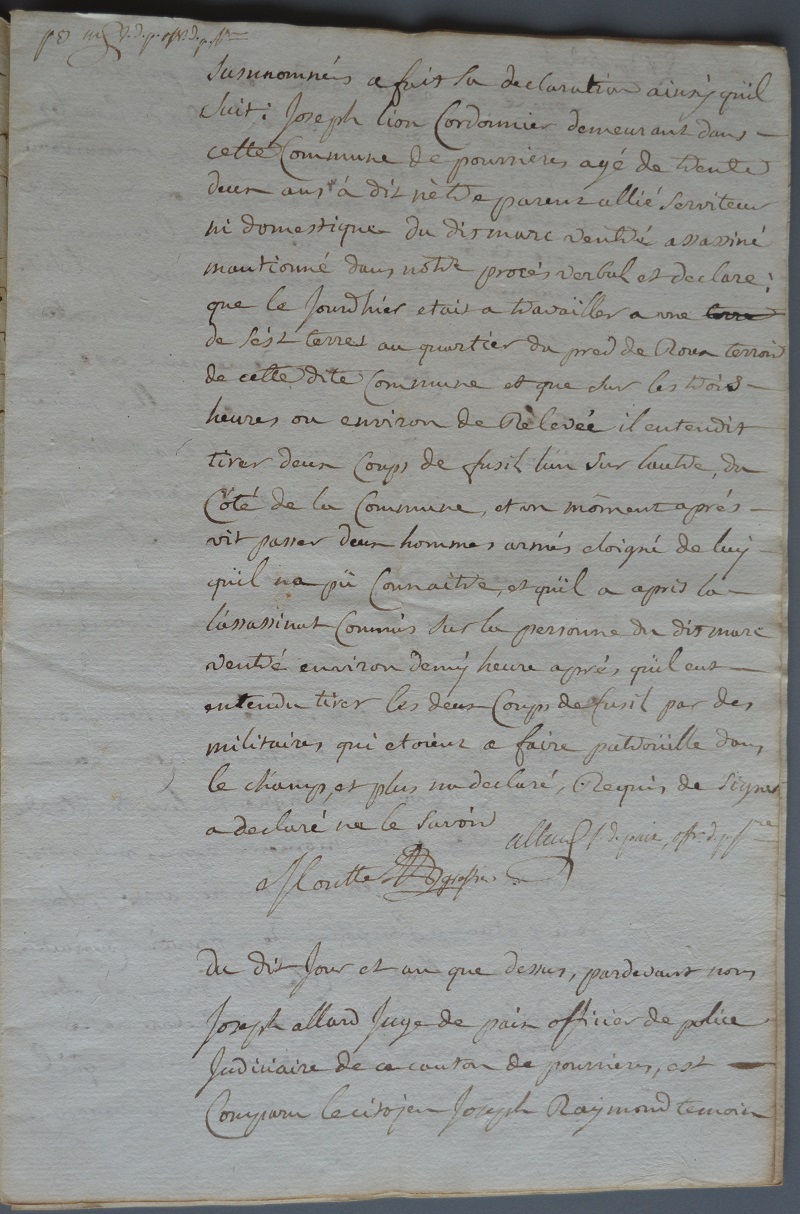 susnommés a fait sa declaration ainsÿ qu'il
suit: Joseph lion Cordonnier demeurant dans
cette Commune de pourrieres agé de trente
deux ans à dit n'étre parent allié serviteur
ni domestique du dit marc ventré assassiné
mantionné dans notre procés verbal et declare:
que le Jourdhier etait a travailler a une terre
de sést terres au quartier du pred de Roux terroir
de cette dite Commune et que sur les trois
heures ou environ de Relevée il entendit
tirer deux Coups de fusil l'un sur lautre, du
Côté de la Commune, et un môment aprés
vit passer deux hommes armés eloigné de luÿ
qu'il na pû Connaitre, et qu'il a apris la
lássassinat Commis sur la personne du dit marc
ventré environ demÿ heure aprés qu'il eut
entendu tirer les deux Coups de fusil par des
militaires qui etoient a faire patroüille dans
le champ, et plus na declaré, Requis de signer
a declaré ne le savoir
allard J. de paix, offr. d. p.
Du dit Jour et an que dessus, pardevant nous
Joseph allard Juge de paix officier de police
Judiciaire de ce canton de pourrieres, est
Comparu le citojen Joseph Raÿmond temoin